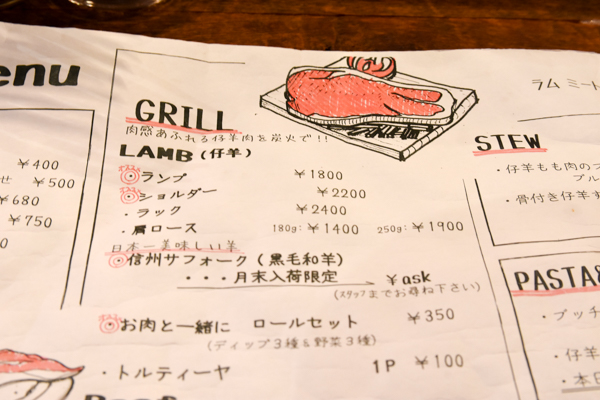 enu
¥400
せ ¥500
¥680
¥750
0
GRILL
肉感あふれる仔羊肉を炭火で!!
LAMB (仔羊)
ランプ ¥1800
ショルダー ¥2200
・ラック ¥2400
・肩ロース 180g:¥1400 250g:¥1900
日本一美味しい羊
信州サフォーク(黒毛和羊)
・・・月末入荷限定 ¥ask
(スタッフまでお尋ね下さい)
お肉と一緒に ロールセット ¥350
(ディップ3種&野菜3種)
・トルティーヤ 1P ¥100
ラム ミート
STEW
・仔羊もも肉の
ブル
・骨付き仔羊す
PASTA&
・プッチ
・仔羊
・本日